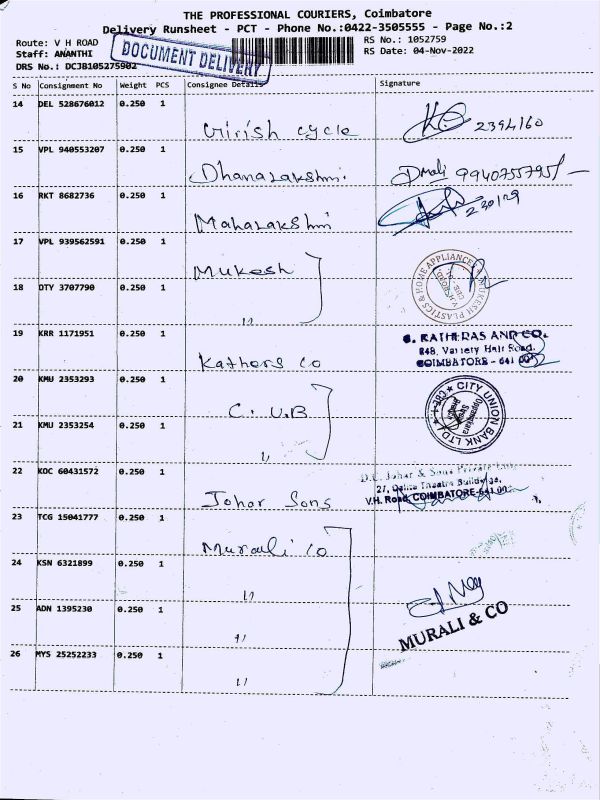 THE PROFESSIONAL COURIERS, Coimbatore
Delivery Runsheet - PCT - Phone No.:0422-3505555 - Page No.:2
Route: V H ROAD
RS No.: 1052759
Staff: ANANTHI
RS Date: 04-Nov-2022
DRS No.: DCJB105275902
DOCUMENT DELIVERY
S No Consignment No Weight PCS Consignee Details Signature
14 DEL 528676012 0.250 1 Girish cycle 2394160
15 VPL 940553207 0.250 1 Dhanalakshmi.
16 RKT 8682736 0.250 1 Mahalakshmi 230129
17 VPL 939562591 0.250 1 Mukesh
MUKESH PLASTICS & HOME APPLIANCES
18 DTY 3707790 0.250 1 "
19 KRR 1171951 0.250 1 Kathers Co
848, Variety Hall Road.
COIMBATORE - 641
20 KMU 2353293 0.250 1 C. U.B
CITY UNION BANK LTD
21 KMU 2353254 0.250 1 "
22 KOC 60431572 0.250 1 Johar Sons
D.C. Johar & Sons Private
V.H. Road, COIMBATORE-641 00
23 TCG 15041777 0.250 1 Murali Co
24 KSN 6321899 0.250 1 "
25 ADN 1395230 0.250 1 "
MURALI & CO
26 MYS 25252233 0.250 1 "